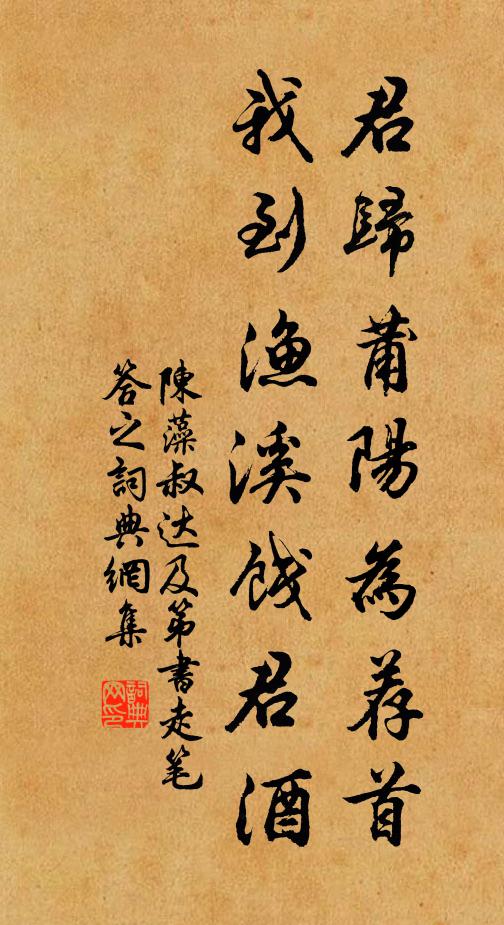 君歸莆陽為荐首
我到漁溪餞君酒
陳藻叔达及第書走笔
答之詞典網集
詞典网印